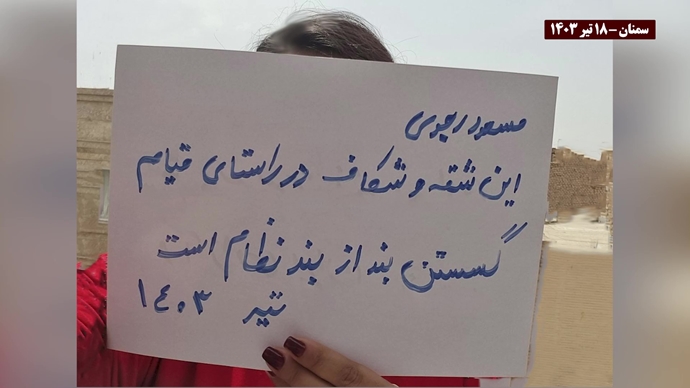 سمنان - ۱۸ تیر ۱۴۰۳
مسعود رجوی
این شقه و شکاف در راستای قیام
گسستن بند از بند نظام است
تیر ۱۴۰۳